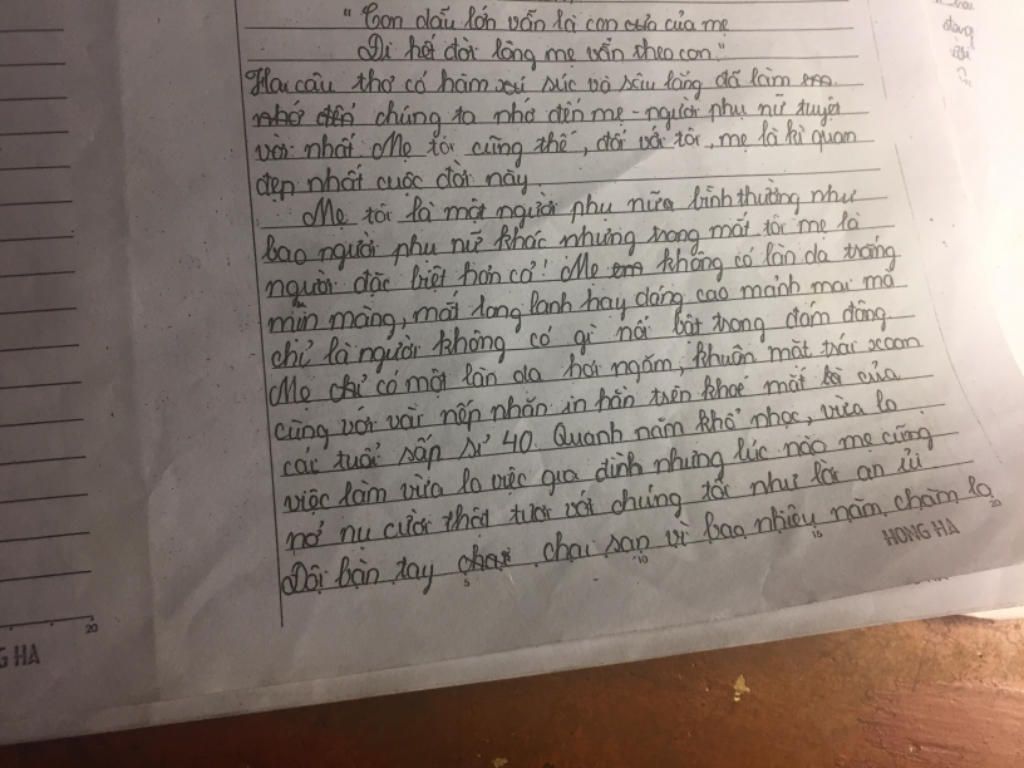 " Con dẫu lớn vẫn là con của mẹ
Đi hết đời lòng mẹ vẫn theo con."
Hai câu thơ có hàm xú súc và sâu lắng đã làm em
nhớ đến chúng ta nhớ đến mẹ - người phụ nữ tuyệt
vời nhất. Mẹ tôi cũng thế, đối với tôi, mẹ là kì quan
đẹp nhất cuộc đời này.
Mẹ tôi là một người phụ nữa bình thường như
bao người phụ nữ khác nhưng trong mắt tôi mẹ là
người đặc biệt hơn cả! Mẹ em không có làn da trắng
mịn màng, mắt long lanh hay dáng cao mảnh mai mà
chỉ là người không có gì nổi bật trong đám đông
Mẹ chỉ có một làn da hơi ngăm, khuôn mặt trái xoan
cùng với vài nếp nhăn in hằn trên khoé mắt của
các tuổi sấp sỉ 40. Quanh năm khổ nhọc, vừa lo
việc làm vừa lo việc gia đình nhưng lúc nào mẹ cũng
nở nụ cười thật tươi với chúng tôi như lời an ủi
Đôi bàn tay chai sạn vì bao nhiêu năm chăm lo
5 10 15 20
HONG HA
20
G HA